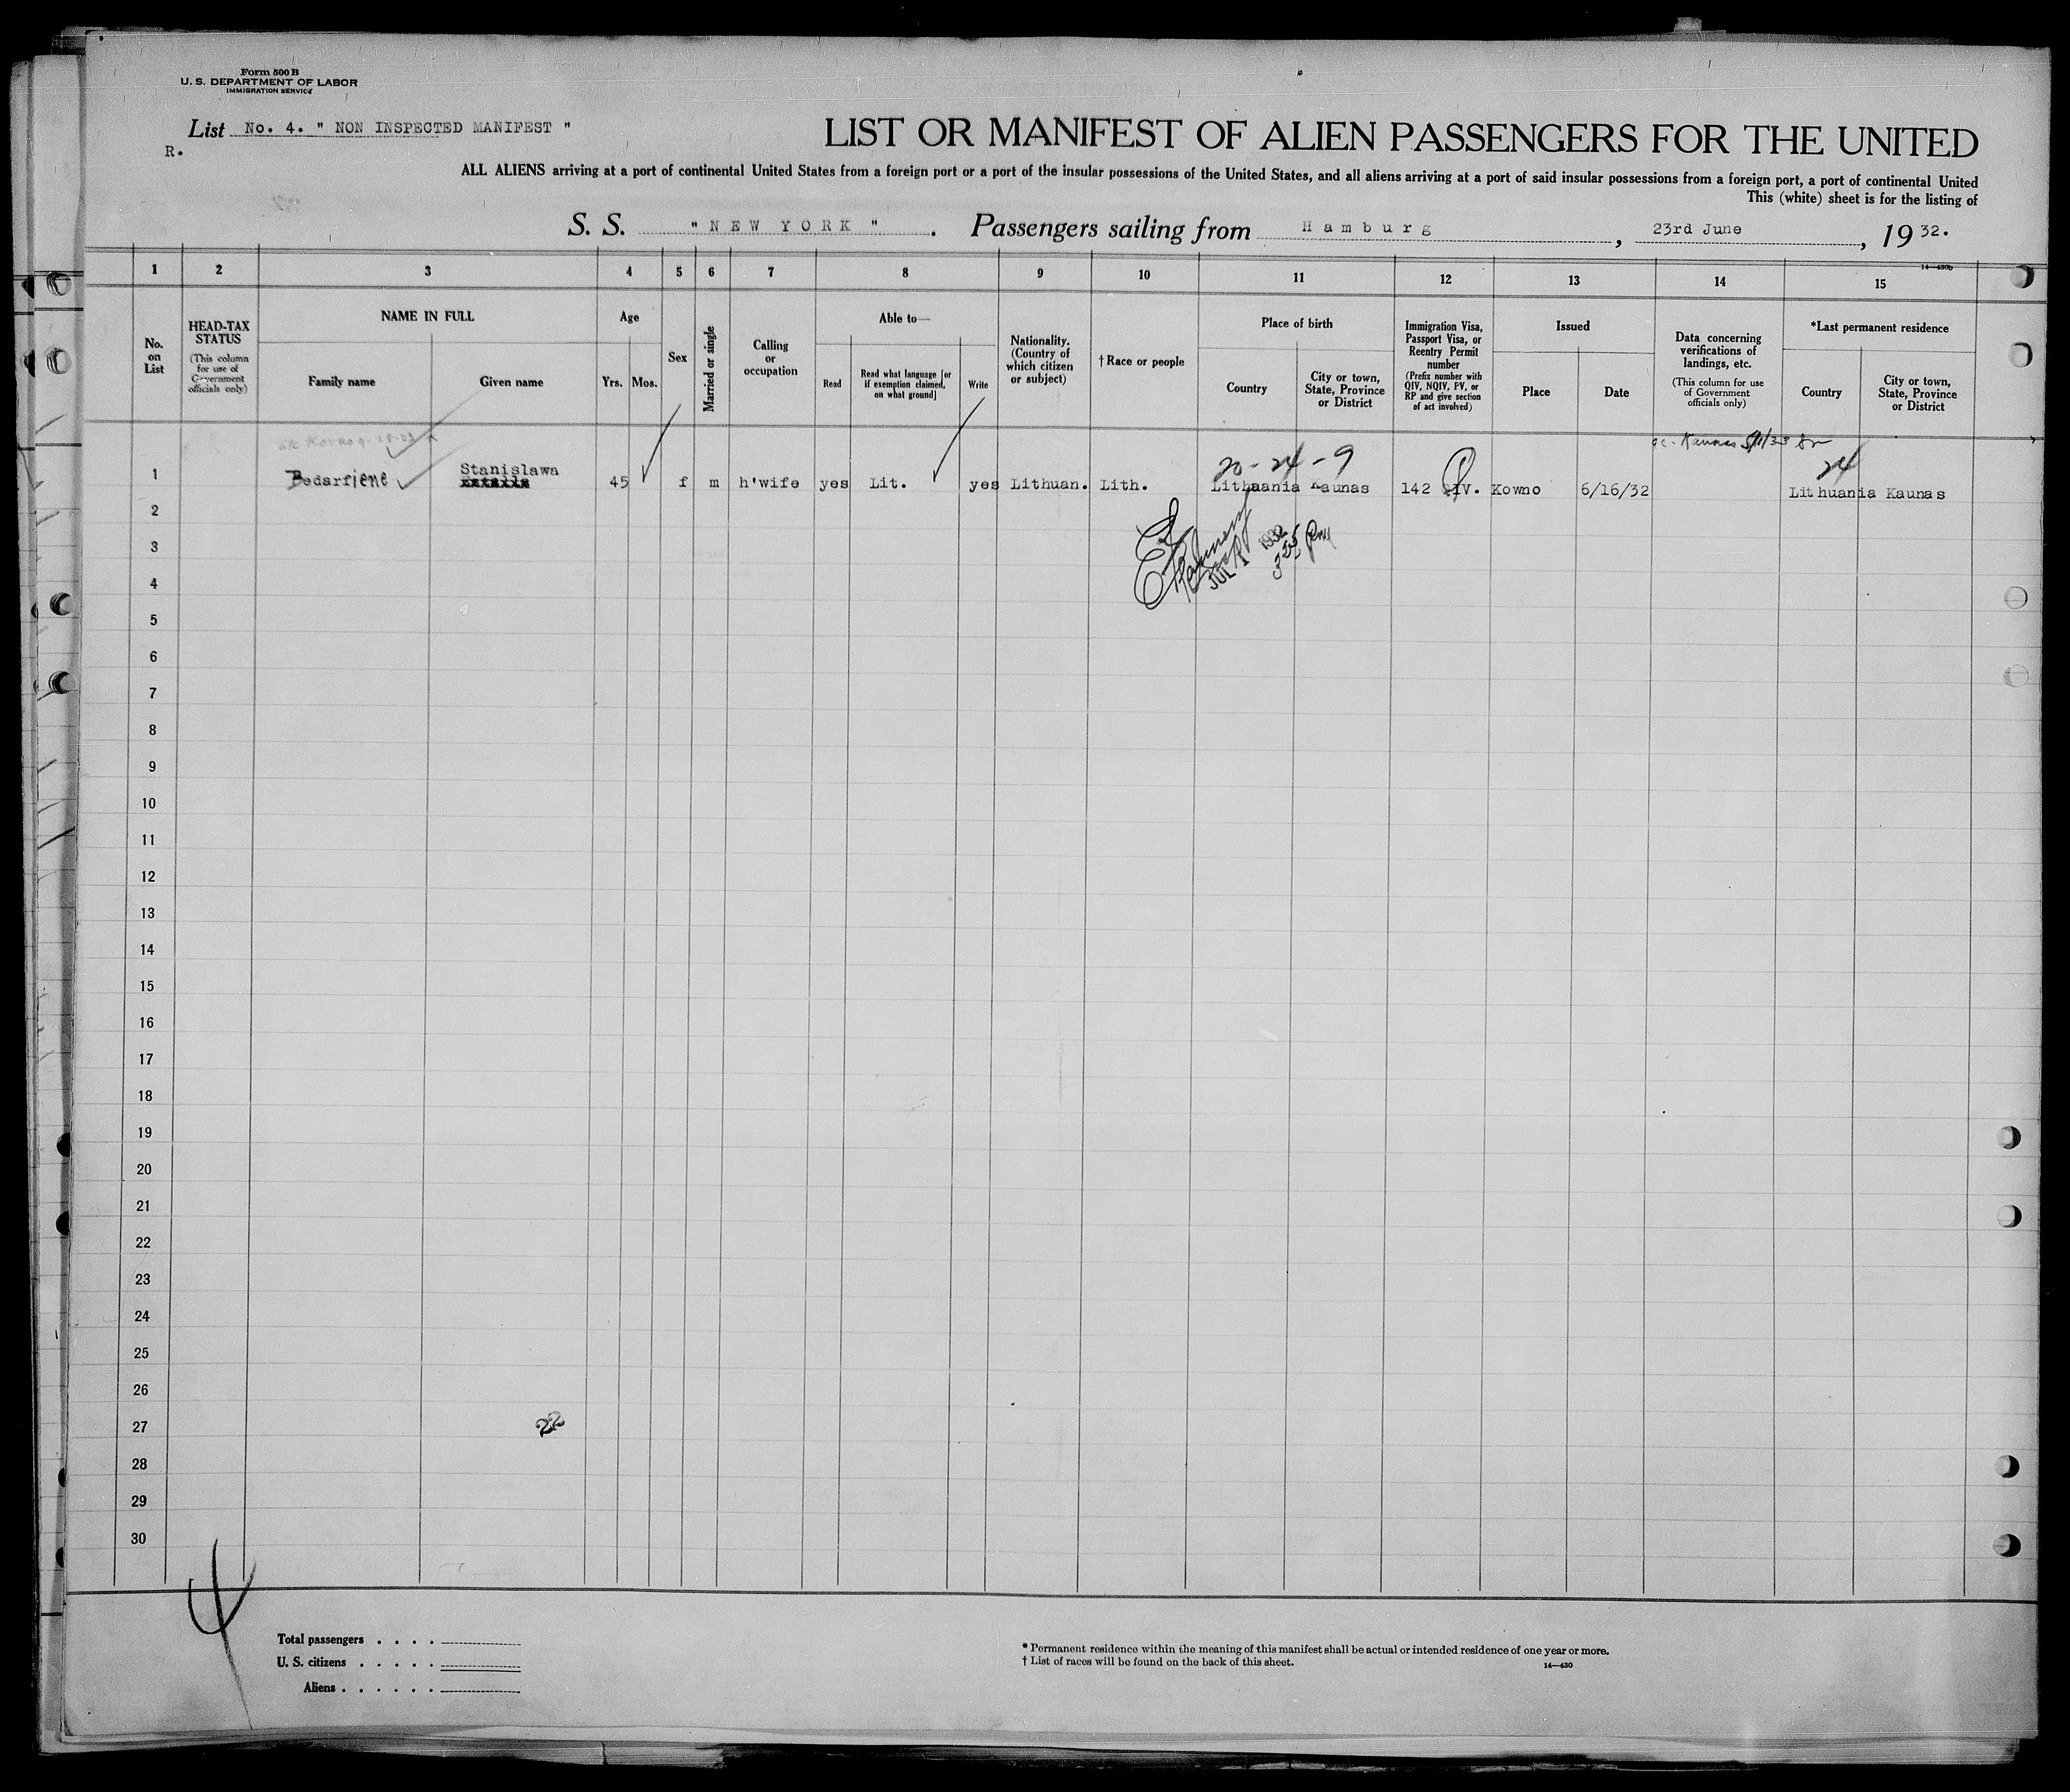 Form 500 B
U. S. DEPARTMENT OF LABOR
IMMIGRATION SERVICE
List No. 4. " NON INSPECTED MANIFEST "
R.
LIST OR MANIFEST OF ALIEN PASSENGERS FOR THE UNITED
ALL ALIENS arriving at a port of continental United States from a foreign port or a port of the insular possessions of the United States, and all aliens arriving at a port of said insular possessions from a foreign port, a port of continental United
This (white) sheet is for the listing of
S. S. " NEW YORK ". Passengers sailing from Hamburg, 23rd June, 19 32.
14—430b
1 2 3 4 5 6 7 8 9 10 11 12 13 14 15
No. on List
HEAD-TAX STATUS
(This column for use of Government officials only)
NAME IN FULL
Family name
Given name
Age
Yrs. Mos.
Sex
Married or single
Calling or occupation
Able to—
Read
Read what language [or if exemption claimed, on what ground]
Write
Nationality. (Country of which citizen or subject)
† Race or people
Place of birth
Country
City or town, State, Province or District
Immigration Visa, Passport Visa, or Reentry Permit number
(Prefix number with QIV, NQIV, PV, or RP and give section of act involved)
Issued
Place
Date
Data concerning verifications of landings, etc.
(This column for use of Government officials only)
*Last permanent residence
Country
City or town, State, Province or District
Kaunas
20 - 24 - 9
24
Stanislawa
1 Bedarfiene 45 f m h'wife yes Lit. yes Lithuan. Lith. Lithaania Kaunas 142 QIV. Kowno 6/16/32 Lithuania Kaunas
2
JUL 1 1932
3
4
5
6
7
8
9
10
11
12
13
14
15
16
17
18
19
20
21
22
23
24
25
26
27
22
28
29
30
4
Total passengers . . . .
U. S. citizens . . . . .
Aliens . . . . . .
* Permanent residence within the meaning of this manifest shall be actual or intended residence of one year or more.
† List of races will be found on the back of this sheet.
14—430